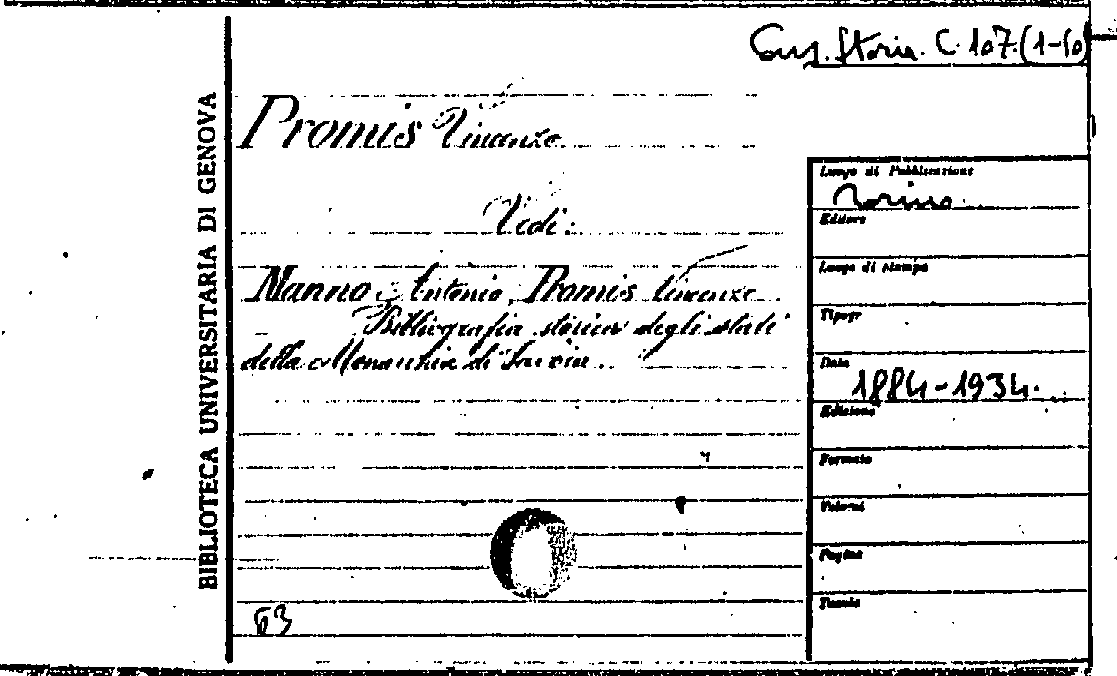 Storia. C. 107.(1-10)
BIBLIOTECA UNIVERSITARIA DI GENOVA
Promis Vincenzo
Vedi:
Manno Antonio, Promis Vincenzo
Bibliografia storica degli stati
della Monarchia di Savoia.
63
Luogo di Pubblicazione
Torino
Editore
Luogo di stampa
Tipogr
Data
1884-1934.
Edizione
Formato
Volumi
Pagine
Tavole